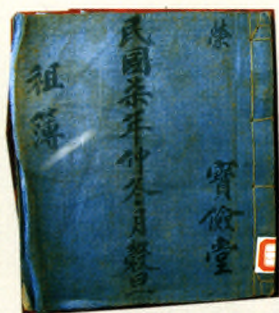 榮 寶儉堂
民國柒年仲冬月穀旦
租簿